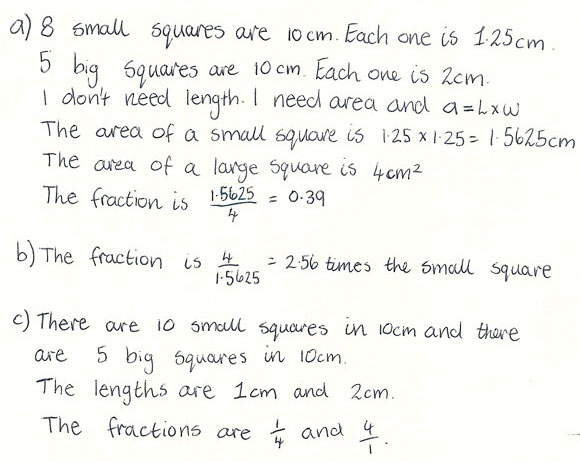 a) 8 small squares are 10cm. Each one is 1.25cm.
5 big squares are 10cm. Each one is 2cm.
I don't need length. I need area and a=L×W
The area of a small square is 1.25 × 1.25 = 1.5625cm
The area of a large square is 4cm²
The fraction is 1.5625/4 = 0.39
b) The fraction is 4/1.5625 = 2.56 times the small square
c) There are 10 small squares in 10cm and there
are 5 big squares in 10cm.
The lengths are 1cm and 2cm.
The fractions are 1/4 and 4/1.